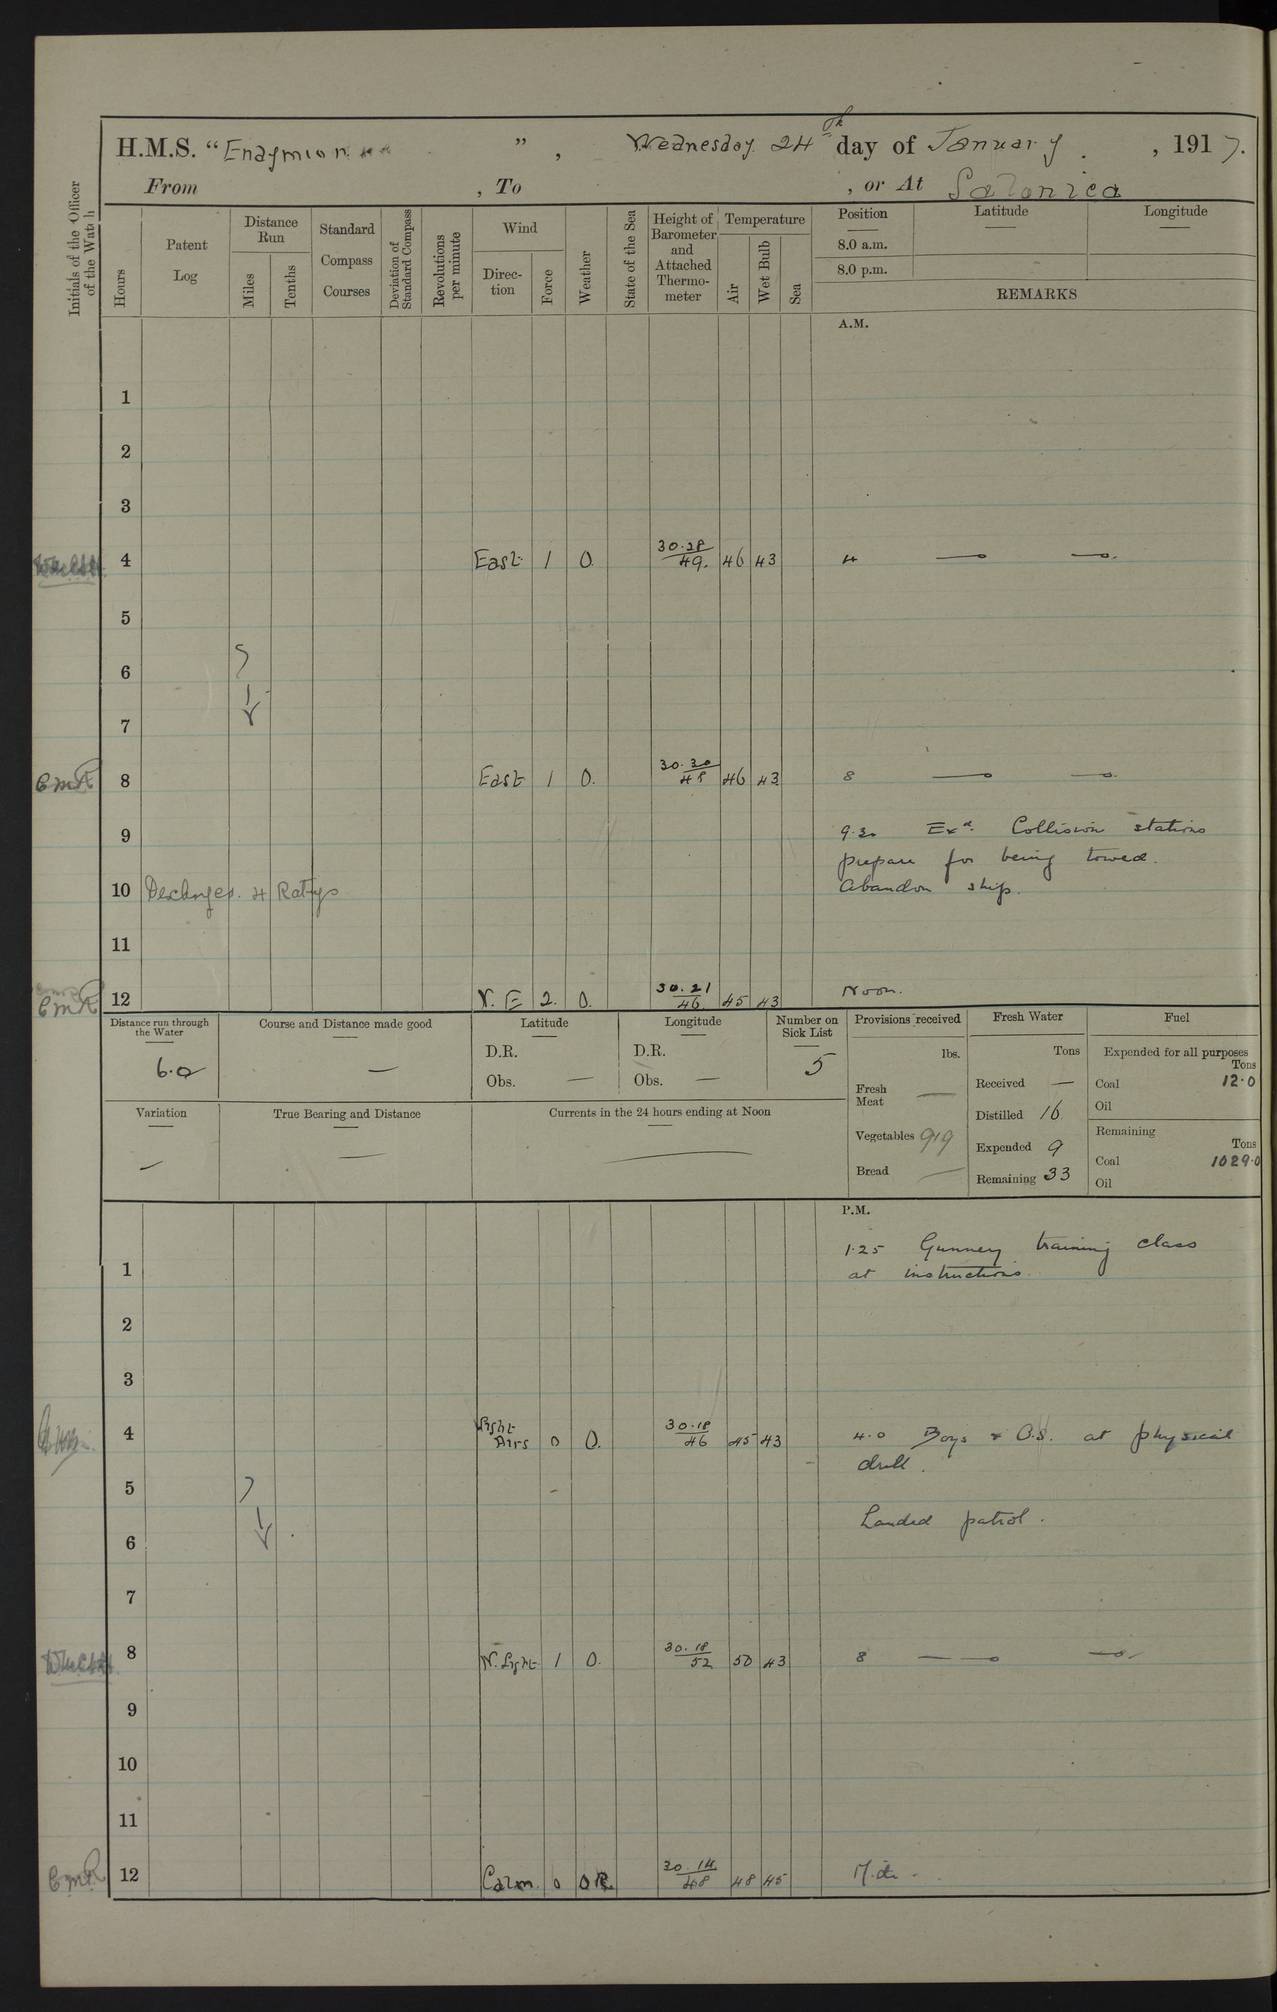 H.M.S. “Endymion ” , Wednesday 24th day of January , 1917.
From , To , or At Salonica
Initials of the Officer of the Watch
Hours
Patent Log
Distance Run
Miles
Tenths
Standard Compass Courses
Deviation of Standard Compass
Revolutions per minute
Wind
Direc-tion
Force
Weather
State of the Sea
Height of Barometer and Attached Thermo-meter
Temperature
Air
Wet Bulb
Sea
Position Latitude Longitude
8.0 a.m.
8.0 p.m.
REMARKS
A.M.
1
2
3
4 East 1 O. 30.28/49. 46 43 4 — —
5
6
7
CMR 8 East 1 O. 30.30/48 46 43 8 — —
9 9.30 Exd. Collision stations
prepare for being towed.
10 Discharged. 4 Ratgs Abandon ship.
11
CMR 12 N.E 2. O. 30.21/46 45 43 Noon.
Distance run through the Water
6.0
Course and Distance made good
—
Latitude
D.R.
Obs. —
Longitude
D.R.
Obs. —
Number on Sick List
5
Provisions received
lbs.
Fresh Meat —
Vegetables 919
Bread —
Fresh Water
Tons
Received —
Distilled 16
Expended 9
Remaining 33
Fuel
Expended for all purposes
Tons
Coal 12.0
Oil
Remaining
Tons
Coal 1029.0
Oil
Variation
—
True Bearing and Distance
—
Currents in the 24 hours ending at Noon
—
P.M.
1.25 Gunnery training class
1 at instructions.
2
3
4 Light Airs 0 O. 30.18/46 45 43 4.0 Boys & O.S. at physical
drill.
5
Landed patrol.
6
7
8 N. Light 1 O. 30.18/52 50 43 8 — —
9
10
11
CMR 12 Calm 0 OR 30.14/48 48 45 Mdt.